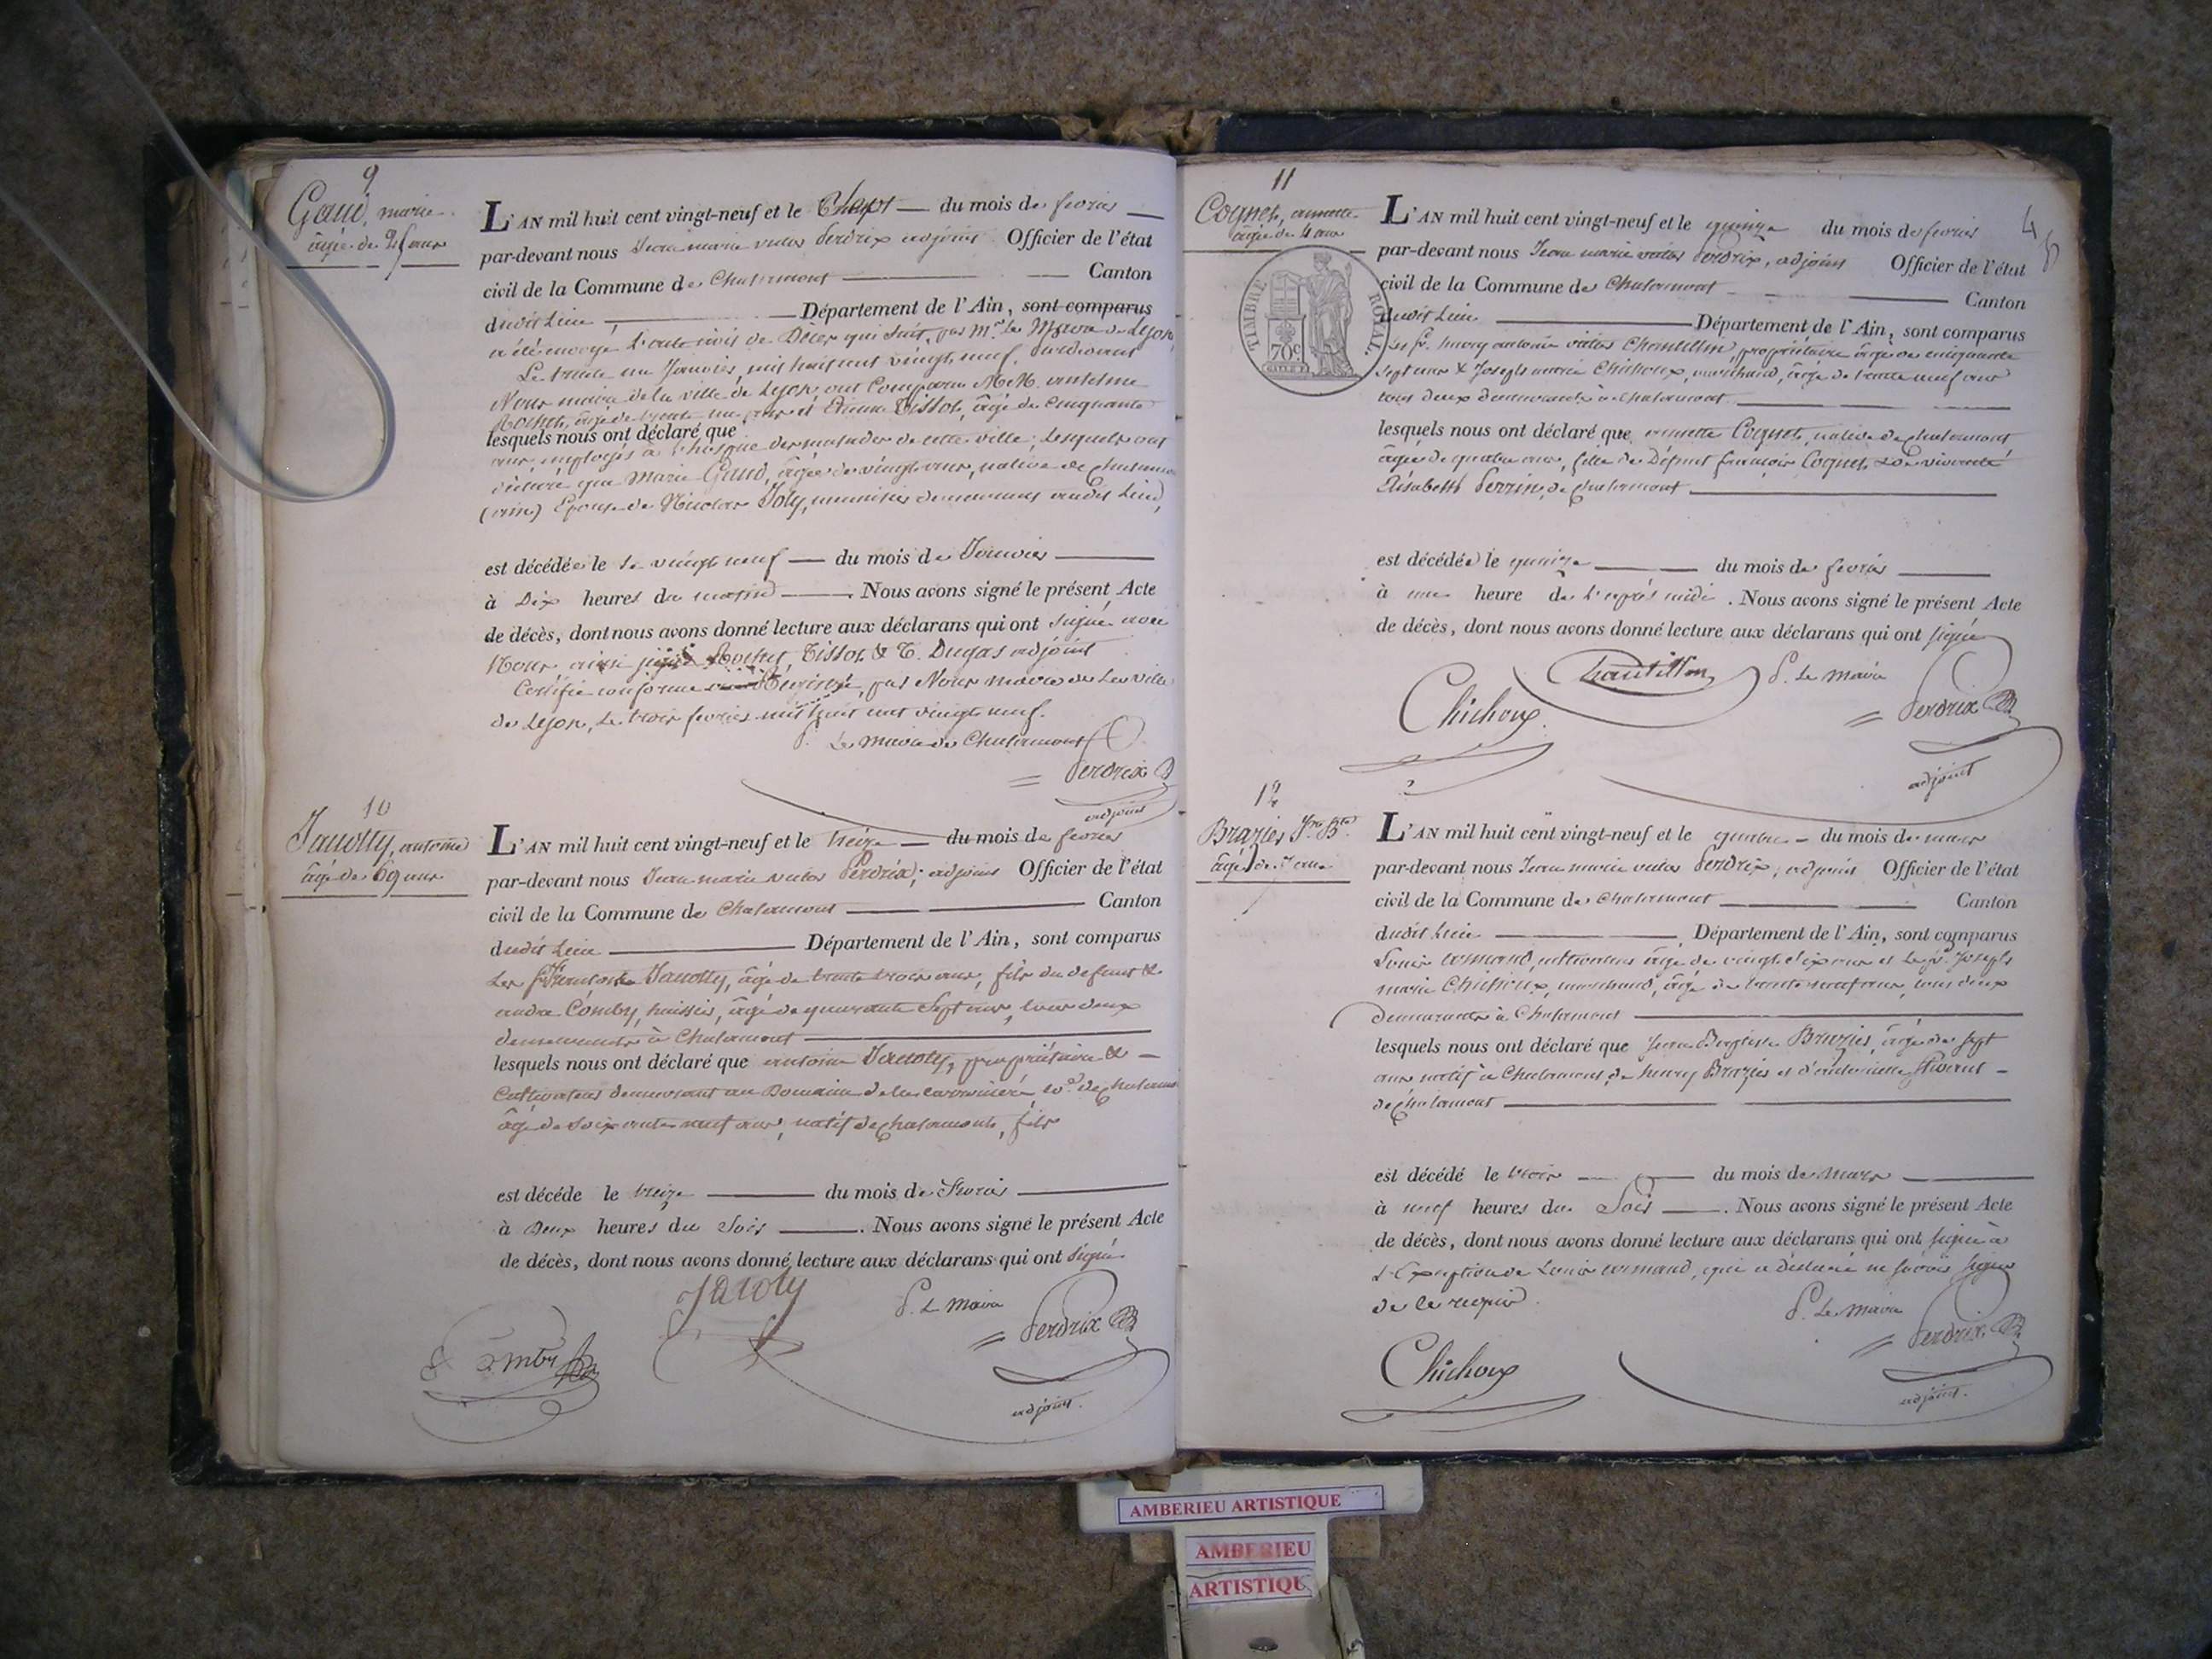 9
Gaud, marie
âgée de 2 ans
L'AN mil huit cent vingt-neuf et le Sept du mois de fevrier
par-devant nous Jean marie Perdrix adjoint Officier de l'état
civil de la Commune de Chalamont Canton
dudit Lieu Département de l'Ain, sont comparus
a été envoyé L'acte de Décès qui suit, par Mr. le Maire de Lyon,
Le trente un Janvier mil huit cent vingt neuf, pardevant
Nous maire de la ville de Lyon, ont Comparu M.M. antelme
Rochet, âgé de trente un ans et Etienne Tissot, âgé de Cinquante
lesquels nous ont déclaré que
ans, employés à l'hospice des malades de cette ville; Lesquels ont
déclaré que Marie Gaud, âgée de vingt ans, native de chalamont
(ain) Epouse de Nicolas Joly, menuisier demeurant audit Lieu,
est décédée le le vingt neuf du mois de Janvier
à Dix heures du matin. Nous avons signé le présent Acte
de décès, dont nous avons donné lecture aux déclarans qui ont Signé avec
Nous ainsi signé Rochet, Tissot & T. Dugas adjoint
Certifié conforme par Nous maire de La ville
de Lyon, Le trois fevrier mil huit cent vingt neuf.
P. Le maire de Chalamont
Perdrix
adjoint
10
Jacolly, antoine
âgé de 69 ans
L'AN mil huit cent vingt-neuf et le treize du mois de fevrier
par-devant nous Jean marie Perdrix, adjoint Officier de l'état
civil de la Commune de Chalamont Canton
dudit Lieu Département de l'Ain, sont comparus
Les Jacolly, âgé de trente trois ans, fils du defunt &
andré Comby, huissier, âgé de quarante Sept ans, tous deux
demeurants à Chalamont
lesquels nous ont déclaré que antoine Jacolly, propriétaire &
Cultivateur demeurant au Domaine de la de chalamont
âgé de Soixante neuf ans, natif de chalamont, fils
est décédé le treize du mois de Fevrier
à Deux heures du Soir. Nous avons signé le présent Acte
de décès, dont nous avons donné lecture aux déclarans qui ont Signé
Jacoly
P. Le Maire
Perdrix
adjoint.
11
Cognet, annette
âgée de 4 ans
4
TIMBRE ROYAL
70c
L'AN mil huit cent vingt-neuf et le quinze du mois de fevrier
par-devant nous Jean marie Perdrix, adjoint Officier de l'état
civil de la Commune de Chalamont Canton
dudit Lieu Département de l'Ain, sont comparus
Les Srs. antoine Chantillon, propriétaire âgé de cinquante
Sept ans & Joseph marie Chichoux, marchand, âgé de trente neuf ans
tous deux demeurants à Chalamont
lesquels nous ont déclaré que annette Cognet, native de chalamont
âgée de quatre ans, fille de Défunt francois Cognet & de vivante
Elisabeth Perrin, de Chalamont
est décédée le quinze du mois de fevrier
à une heure de l'après midi. Nous avons signé le présent Acte
de décès, dont nous avons donné lecture aux déclarans qui ont signé
Chantillon P. Le Maire
Chichoux.
Perdrix
adjoint
12
Brazier Jn. Bte.
âgé de 7 ans
L'AN mil huit cent vingt-neuf et le quatre du mois de mars
par-devant nous Jean marie Perdrix, adjoint Officier de l'état
civil de la Commune de Chalamont Canton
dudit Lieu Département de l'Ain, sont comparus
Louis armand, cultivateur âgé de vingt Six ans et Le Sr. Joseph
marie Chichoux, marchand, âgé de trente neuf ans, tous deux
Demeurants à Chalamont
lesquels nous ont déclaré que Jean Baptiste Brazier, âgé de sept
ans natif à Chalamont, de Brazier et d'antoinette
de Chalamont
est décédé le trois du mois de Mars
à neuf heures du Soir. Nous avons signé le présent Acte
de décès, dont nous avons donné lecture aux déclarans qui ont signé à
L'Exception de Louis armand, qui a Déclaré ne savoir signer
de ce requis.
P. Le Maire
Chichoux
Perdrix
adjoint.
AMBERIEU ARTISTIQUE
AMBERIEU
ARTISTIQU